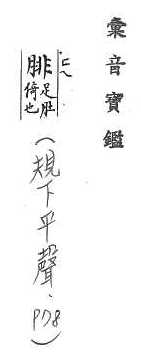 彙音寶鑑
腓足肚
倚也
(規下平聲.P78)